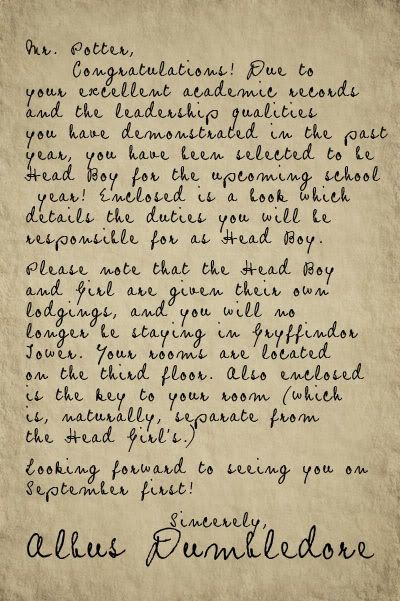 Mr. Potter,
Congratulations! Due to
your excellent academic records
and the leadership qualities
you have demonstrated in the past
year, you have been selected to be
Head Boy for the upcoming school
year! Enclosed is a book which
details the duties you will be
responsible for as Head Boy.
Please note that the Head Boy
and Girl are given their own
lodgings, and you will no
longer be staying in Gryffindor
Tower. Your rooms are located
on the third floor. Also enclosed
is the key to your room (which
is, naturally, separate from
the Head Girl's.)
Looking forward to seeing you on
September first!
Sincerely,
Albus Dumbledore